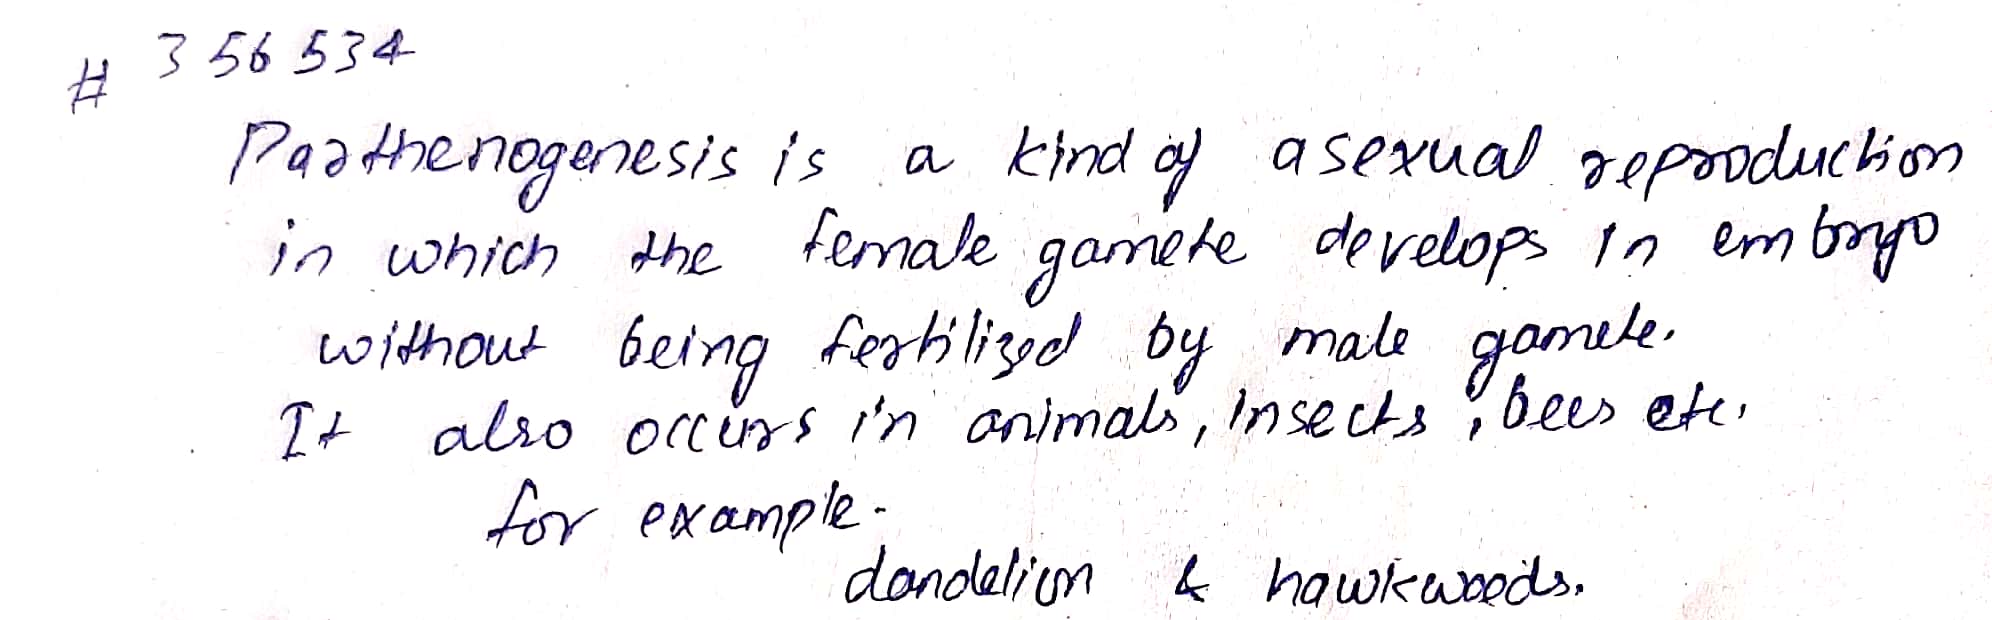 # 356534
Parthenogenesis is a kind of asexual reproduction
in which the female gamete develops in embryo
without being fertilized by male gamete.
It also occurs in animals, insects, bees etc.
for example-
dandelion & hawkwoods.